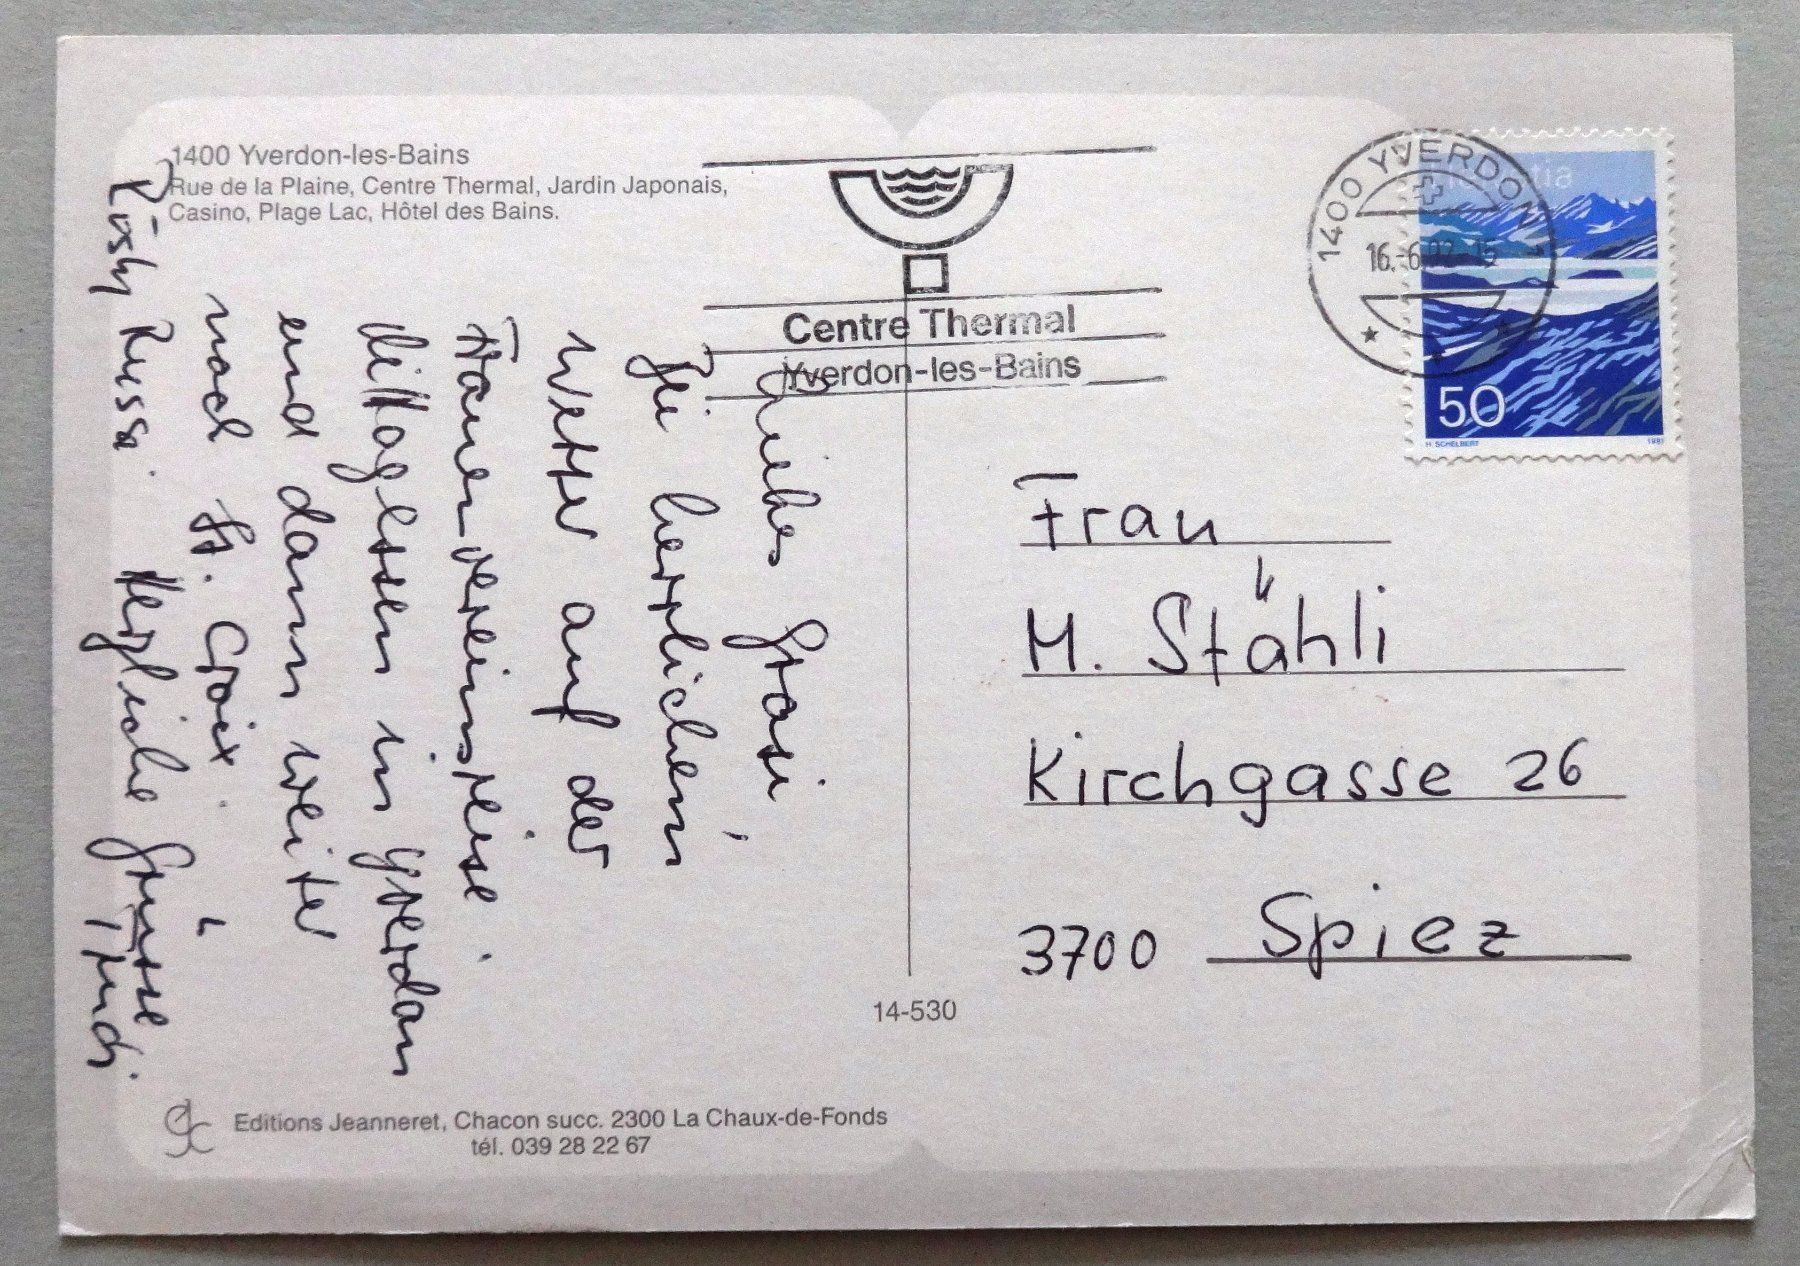 1400 Yverdon-les-Bains
Rue de la Plaine, Centre Thermal, Jardin Japonais,
Casino, Plage Lac, Hôtel des Bains.
Centre Thermal
Yverdon-les-Bains
1400 YVERDON 1
16.-6.92-15
Helvetia
50
H. SCHELBERT 1991
Liebes Grosi
Bei herrlichem
Wetter auf der
Frauenvereinsreise.
Mittagessen in Yverdon
und dann weiter
nach St. Croix.
Herzliche Grüsse
Trudi
Rösly Russi.
Frau
M. Stähli
Kirchgasse 26
3700 Spiez
14-530
Editions Jeanneret, Chacon succ. 2300 La Chaux-de-Fonds
tél. 039 28 22 67